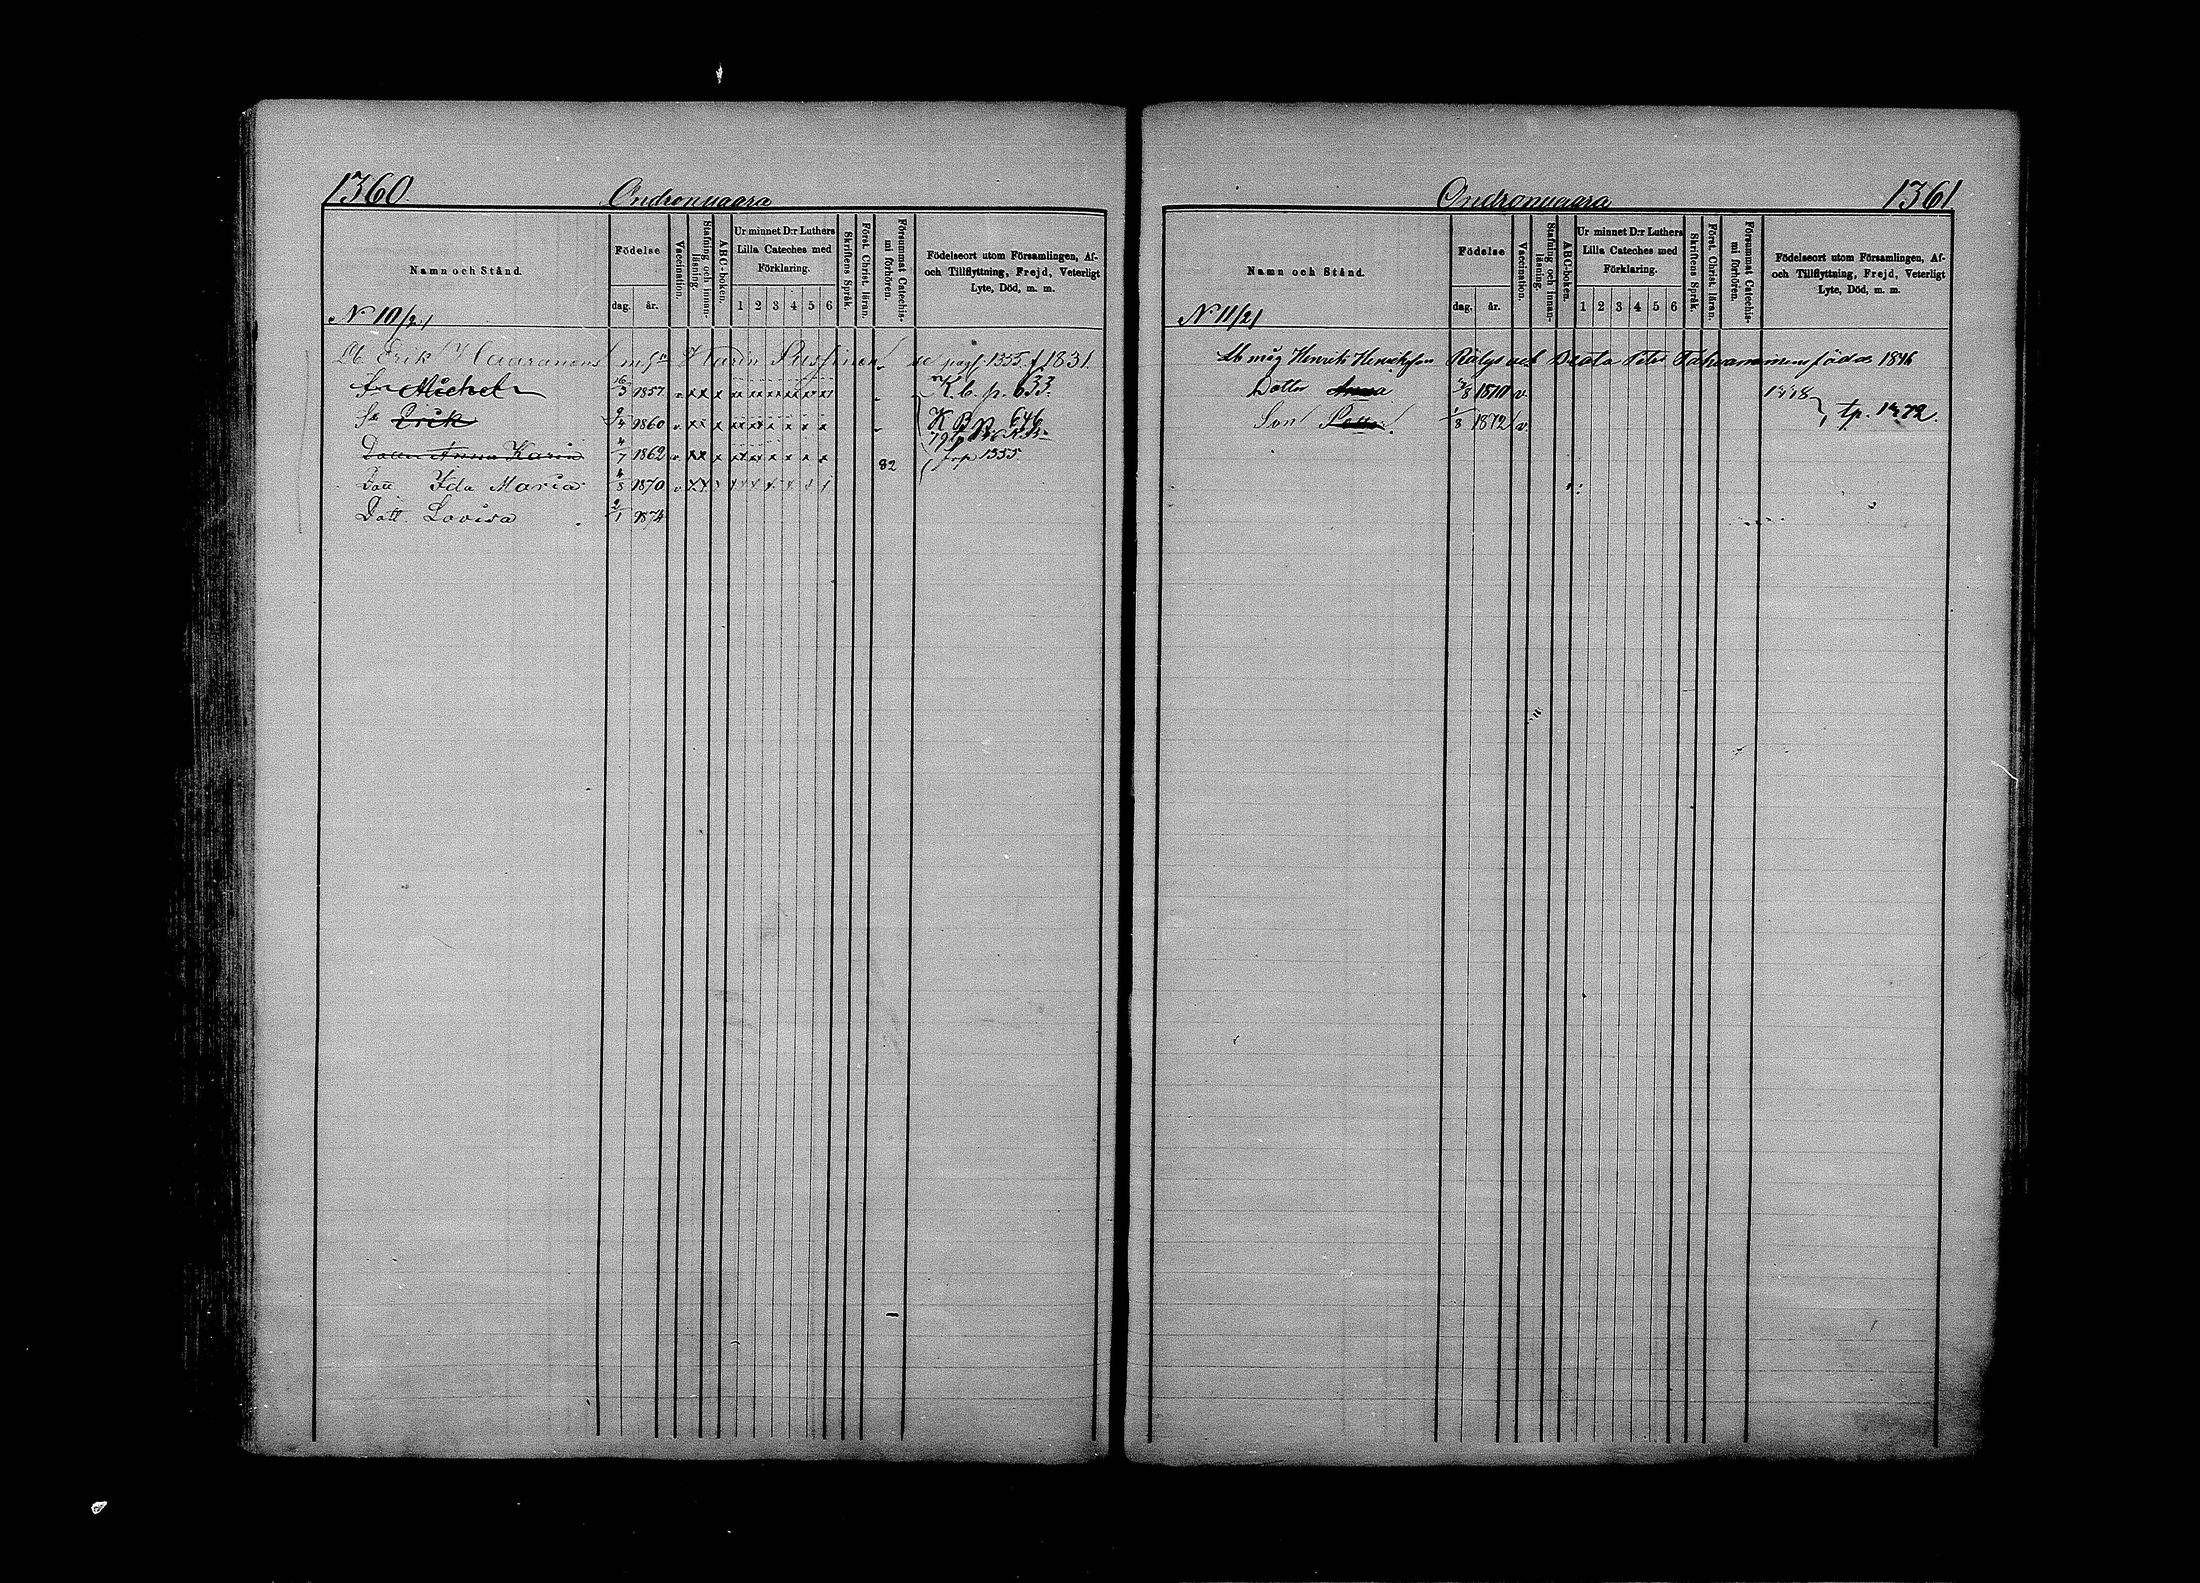 1360.
Ondronvaara
Namn och Stånd.
Födelse
dag. år.
Vaccination.
Stafning och innanläsning.
ABC-boken.
Ur minnet D:r Luthers Lilla Cateches med Förklaring.
1 2 3 4 5 6
Skriftens Språk.
Först. Christ. läran.
Försummat Catechismi förhören.
Födelseort utom Församlingen, Af- och Tillflyttning, Frejd, Veterligt Lyte, Död, m. m.
N 10/21
Lb Erik Haaranens Karin se pag. 1355. f 1831.
Sn Michel 16/3 1857 v xx x xx x x x x x K. b. p. 633.
Sn Erik 9/4 1860 v xx x x x x x x x K B p. 646
Dotter Anna Karin 4/7 1862 v xx x x x x x x x 82 1355
Dott Ida Maria 4/8 1870 v
Dott. Lovisa 2/1 1874
Ondronvaara
1361
Namn och Stånd.
Födelse
dag. år.
Vaccination.
Stafning och innanläsning.
ABC-boken.
Ur minnet D:r Luthers Lilla Cateches med Förklaring.
1 2 3 4 5 6
Skriftens Språk.
Först. Christ. läran.
Försummat Catechismi förhören.
Födelseort utom Församlingen, Af- och Tillflyttning, Frejd, Veterligt Lyte, Död, m. m.
N 11/21
Lb måg Henrik Henriksson och Beata födda 1846
Dotter Anna /8 1870 v
Son 1/8 1872 v tp. 1372.